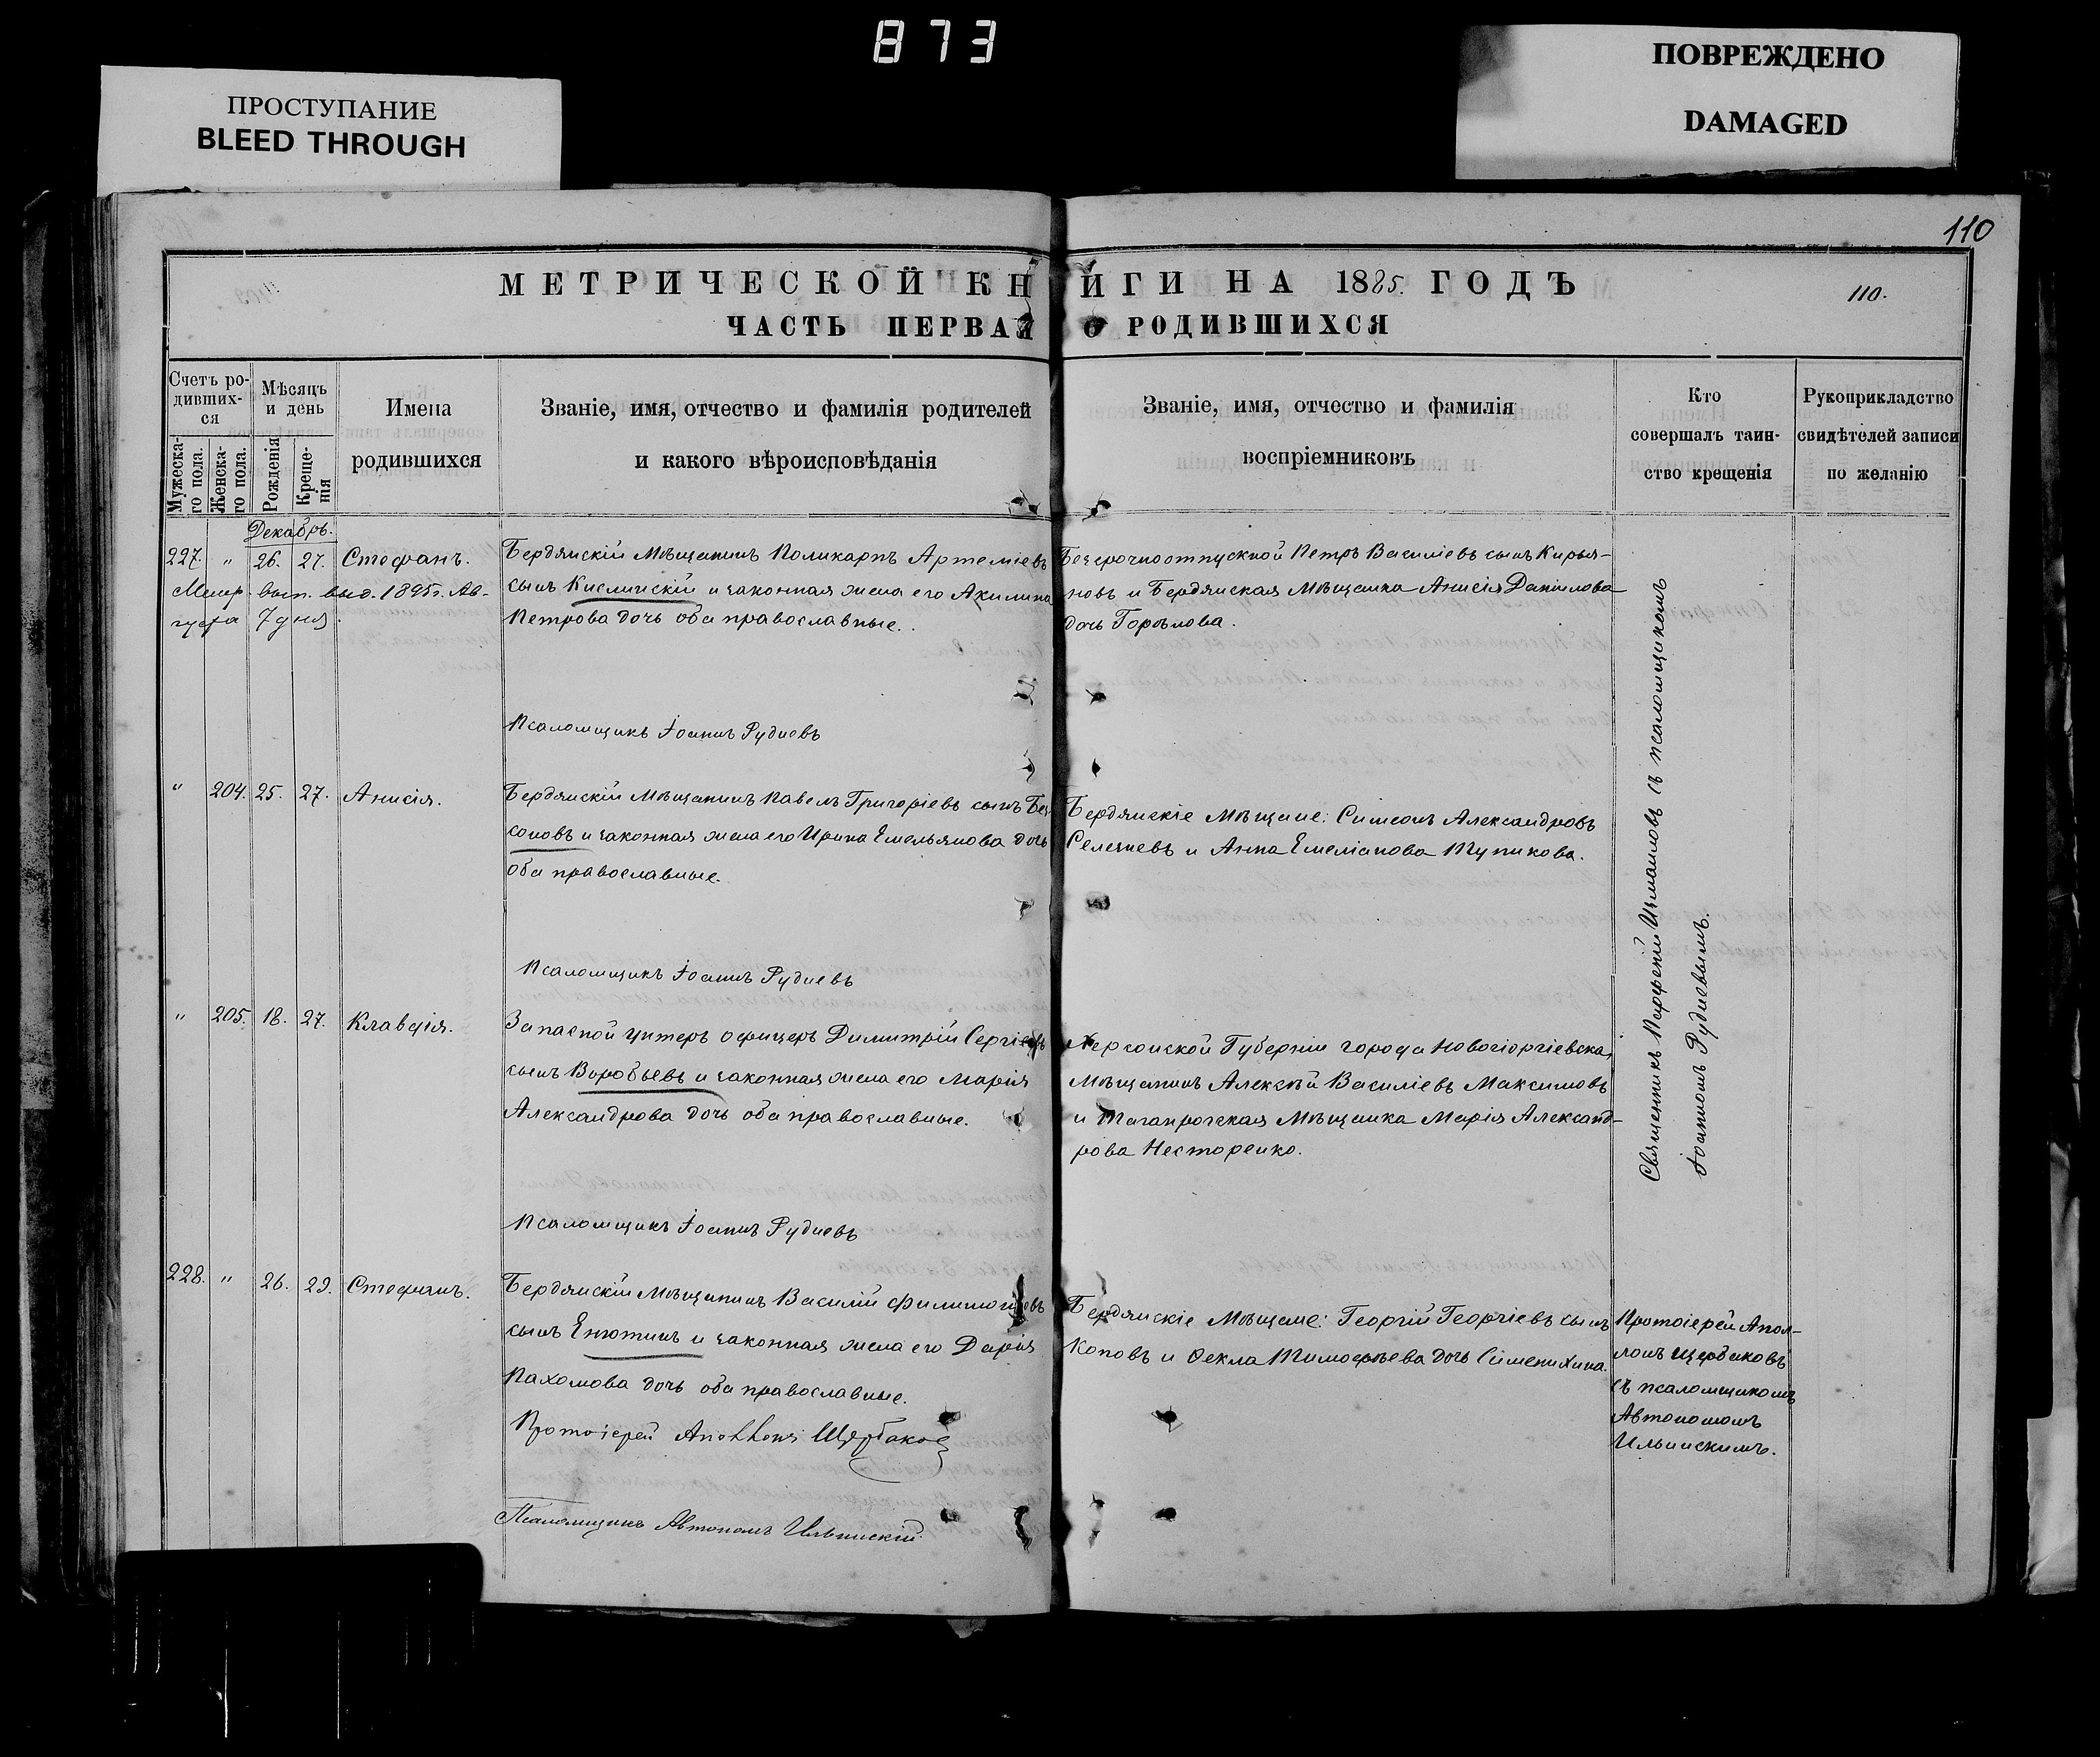 873
ПРОСТУПАНИЕ
BLEED THROUGH
ПОВРЕЖДЕНО
DAMAGED
110
МЕТРИЧЕСКОЙ КНИГИ НА 1885. ГОДЪ
110.
ЧАСТЬ ПЕРВАЯ О РОДИВШИХСЯ
Счетъ ро-
дивших-
ся
Мужеска-
го пола.
Женска-
го пола.
Мѣсяцъ
и день
Рожденія
Креще-
нія
Имена
родившихся
Званіе, имя, отчество и фамилія родителей
и какого вѣроисповѣданія
Званіе, имя, отчество и фамилія
воспріемниковъ
Кто
совершалъ таин-
ство крещенія
Рукоприкладство
свидѣтелей записи
по желанію
Декабрь.
227. " 26. 27. Стефанъ.
Метр. вып. выд. 1895 г. Ав-
густа 7 дня.
Бердянскій Мѣщанинъ Поликарпъ Артеміевъ
сынъ Кислинскій и законная жена его Акилина
Петрова дочь оба православные.
Безсрочноотпускной Петръ Василіевъ сынъ Кирья-
новъ и Бердянская Мѣщанка Анисія Данилова
дочь Горѣлова.
Псаломщикъ Іоаннъ Рудневъ
" 204. 25. 27. Анисія.
Бердянскій Мѣщанинъ Павелъ Григоріевъ сынъ Без-
соновъ и законная жена его Ирина Емельянова дочь
оба православные.
Бердянскіе Мѣщане: Симеонъ Александровъ
Селезневъ и Анна Емеліанова Тупикова.
Псаломщикъ Іоаннъ Рудневъ
" 205. 18. 27. Клавдія.
Запасной унтеръ офицеръ Димитрій Сергіевъ
сынъ Воробьевъ и законная жена его Марія
Александрова дочь оба православные.
Херсонской Губерніи города Новогіоргіевска,
Мѣщанинъ Алексѣй Василіевъ Максимовъ
и Таганрогская Мѣщанка Марія Александ-
рова Несторенко.
Псаломщикъ Іоаннъ Рудневъ
Священникъ Парфеній Измаиловъ съ псаломщикомъ
Іоанномъ Рудневымъ.
228. " 26. 29. Стефанъ.
Бердянскій Мѣщанинъ Василій Филимоновъ
сынъ Енютинъ и законная жена его Дарія
Пахомова дочь оба православные.
Бердянскіе Мѣщане: Георгій Георгіевъ сынъ
Коповъ и Ѳекла Тимофѣева дочь Сименихина.
Протоіерей Апол-
лонъ Щербаковъ
съ псаломщикомъ
Автономомъ
Ильинскимъ.
Протоіерей Аполлонъ Щербаковъ
Псаломщикъ Автономъ Ильинскій.